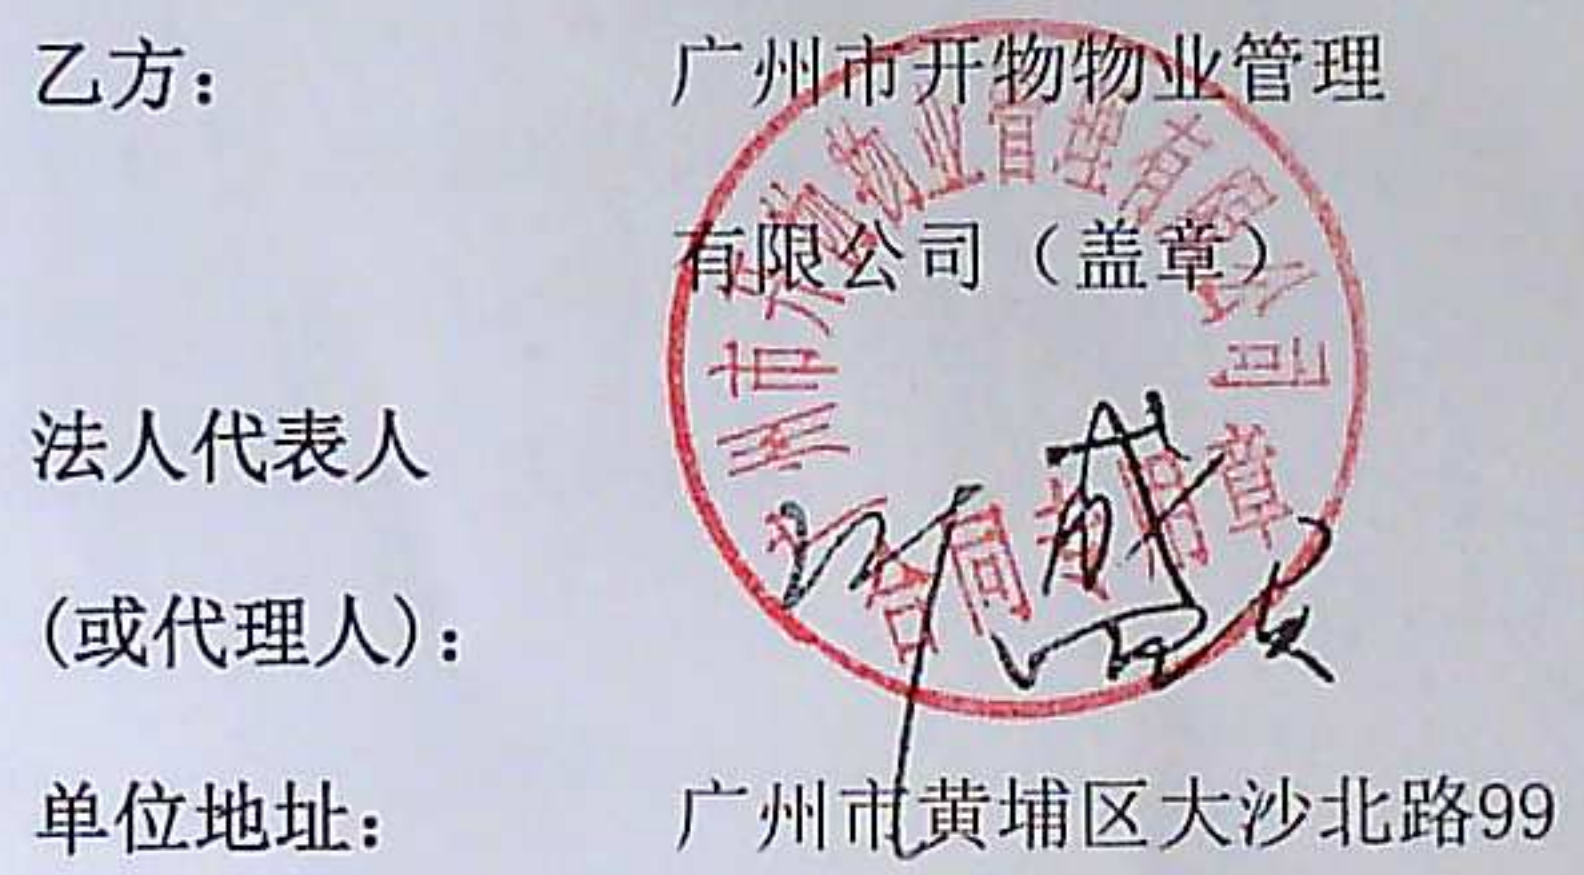 乙方：
广州市开物物业管理
有限公司（盖章）
广州市开物物业管理有限公司
合同专用章
法人代表人
(或代理人)：
单位地址：
广州市黄埔区大沙北路99